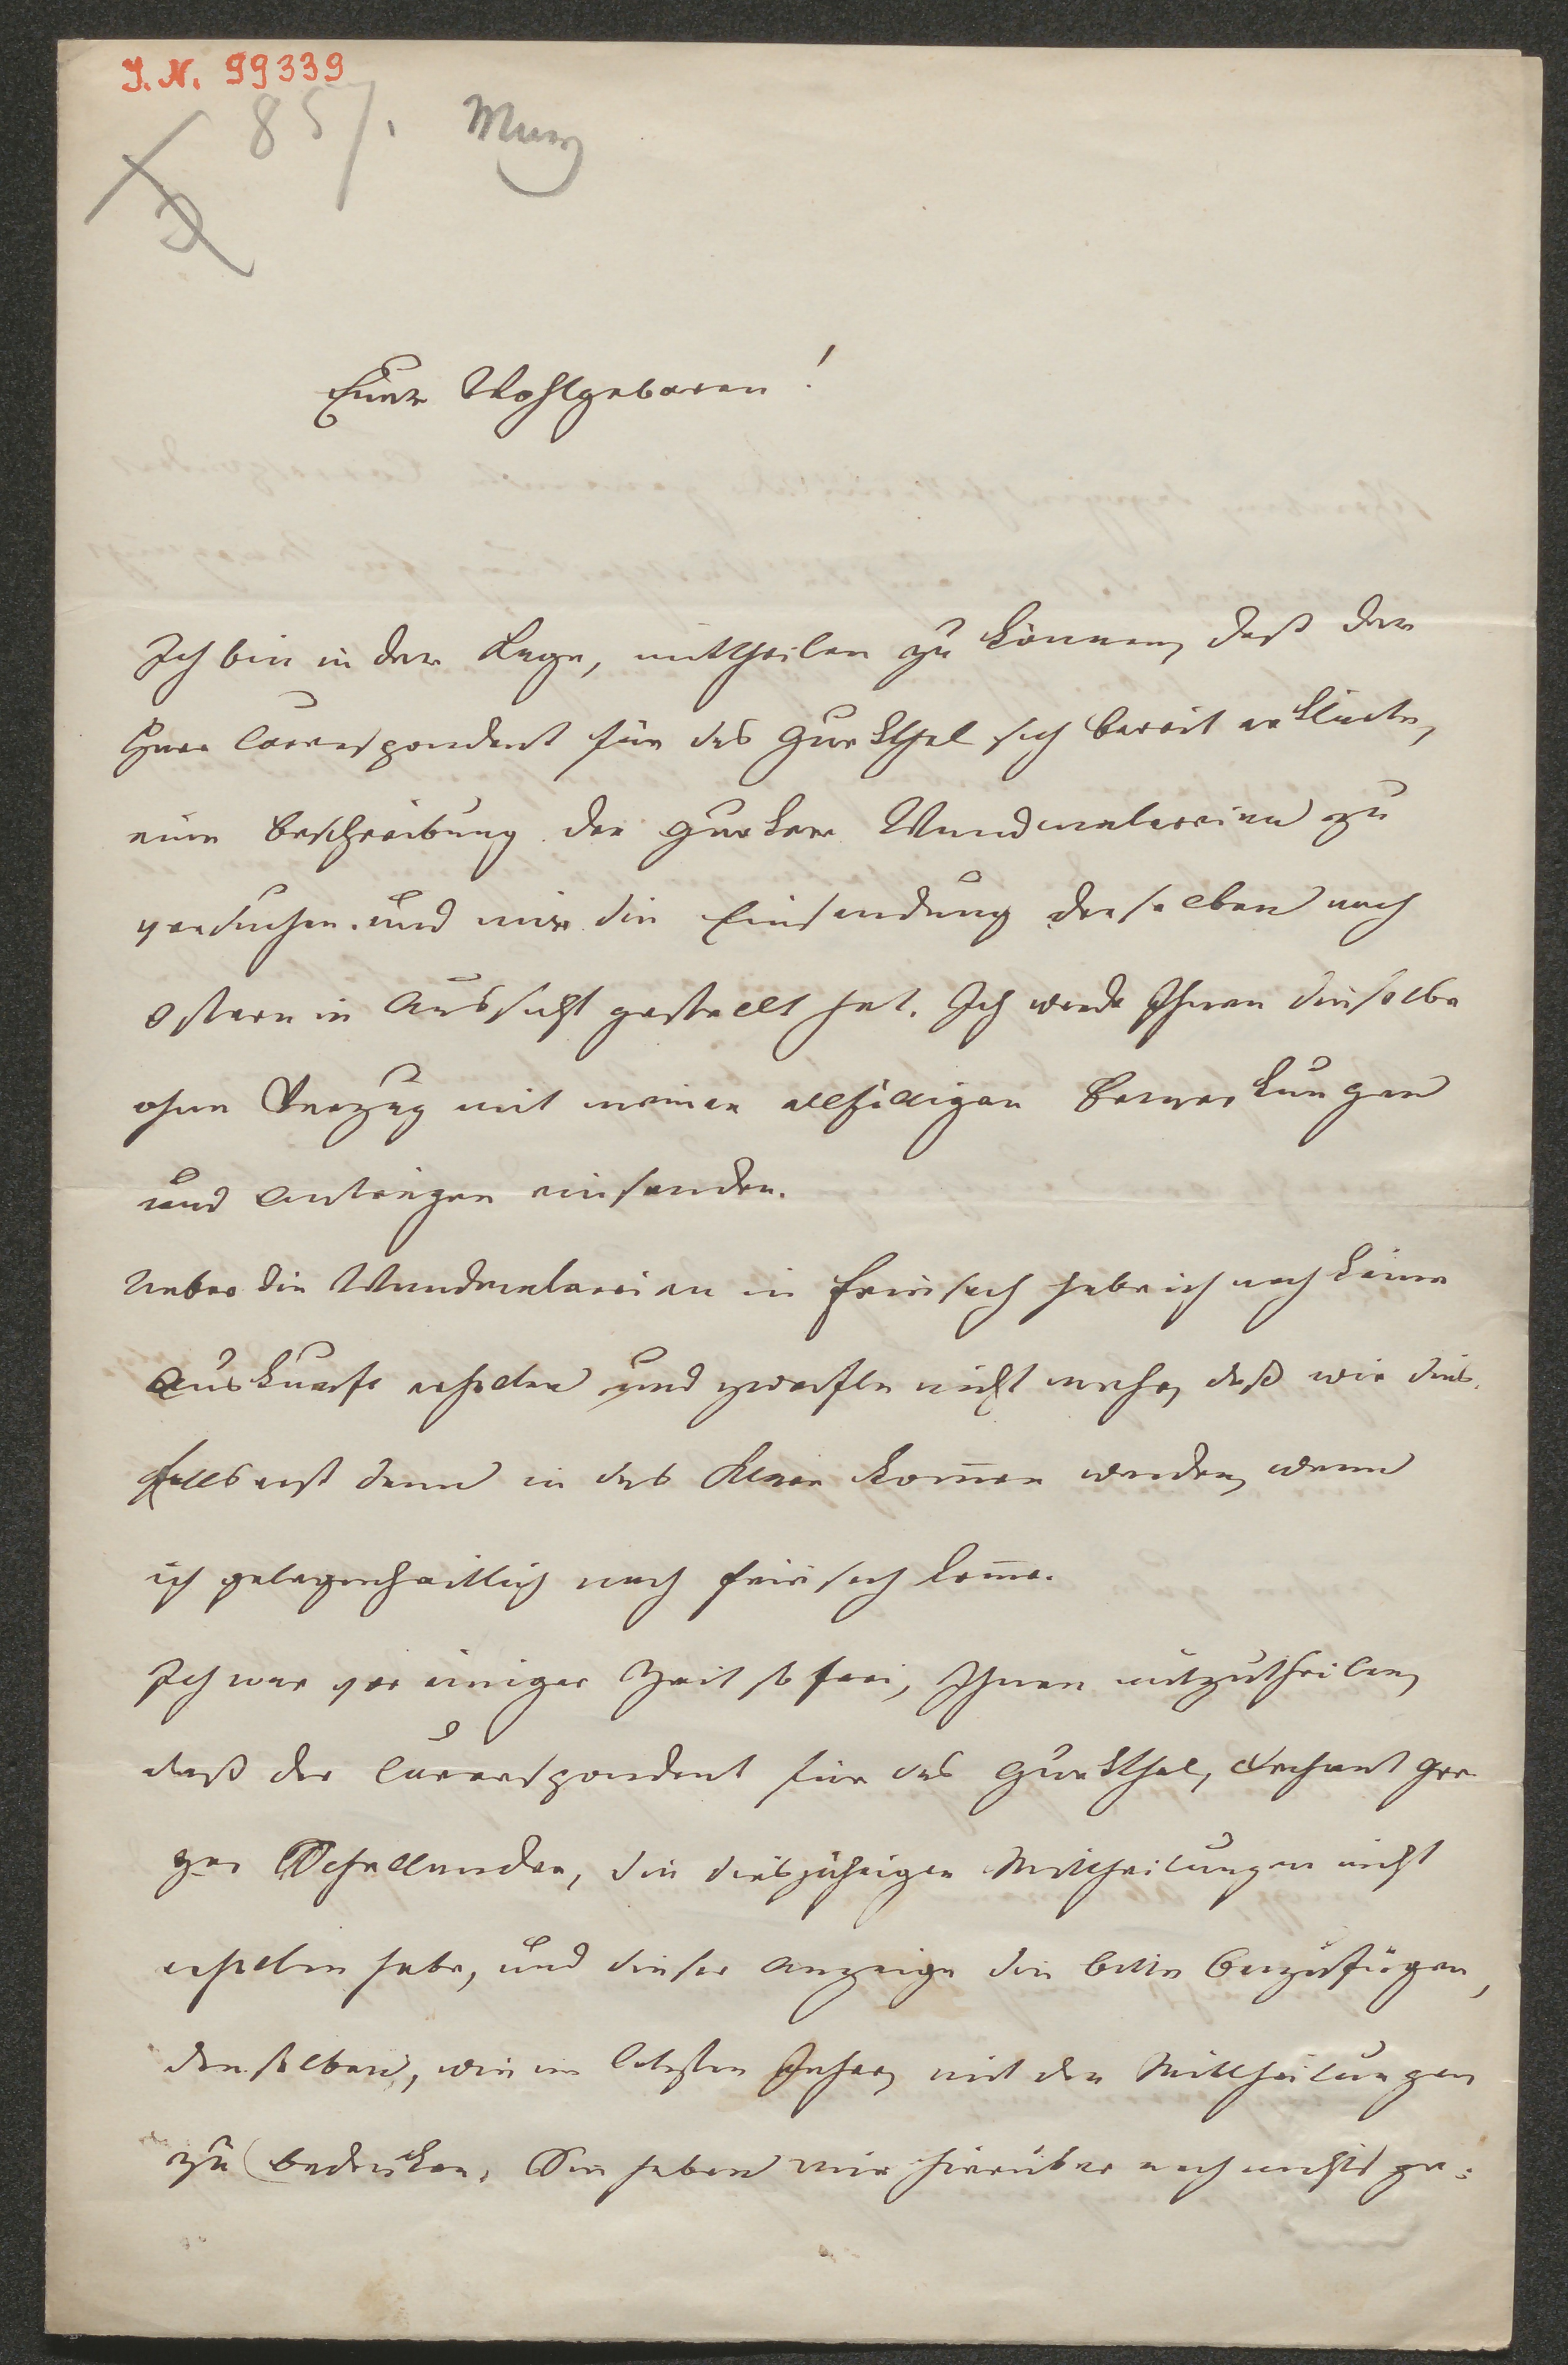 I. N. 99339
85/.
Euer Wohlgeboren!
Ich bin in der Lage, mittheilen zu können, daß der
Herr Correspondent für das Gurkthal sich bereit erklärte,
eine Beschreibung der Gurker Wandmalereien zu
versuchen und mir die Einsendung derselben nach
Ostern in Aussicht gestellt hat. Ich werde Ihnen dieselbe
ohne Verzug mit meinen allfälligen Bemerkungen
und Anträgen einsenden.
Ueber die Wandmalereien in Friesach habe ich noch keine
Auskunft erhalten und zweifle nicht mehr, daß wir dies-
falls erst dann in das Klare kom̄en werden, wenn
ich gelegenheitlich nach Friesach kom̄e.
Ich war vor einiger Zeit so frei, Ihnen mitzutheilen,
daß der Correspondent für das Gurkthal, Dechant Gre-
gor Schellander, die diesjährigen Mittheilungen nicht
erhalten habe, und dieser Anzeige die Bitte beizufügen,
denselben, wie im letzten Jahre, mit den Mittheilungen
zu bedenken. Sie haben mir hierüber noch nichts ge-